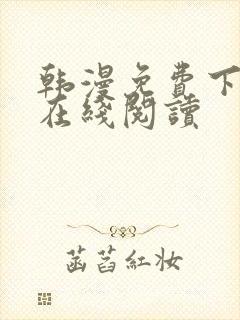 韩漫免费下
在线阅读
菡萏红妆